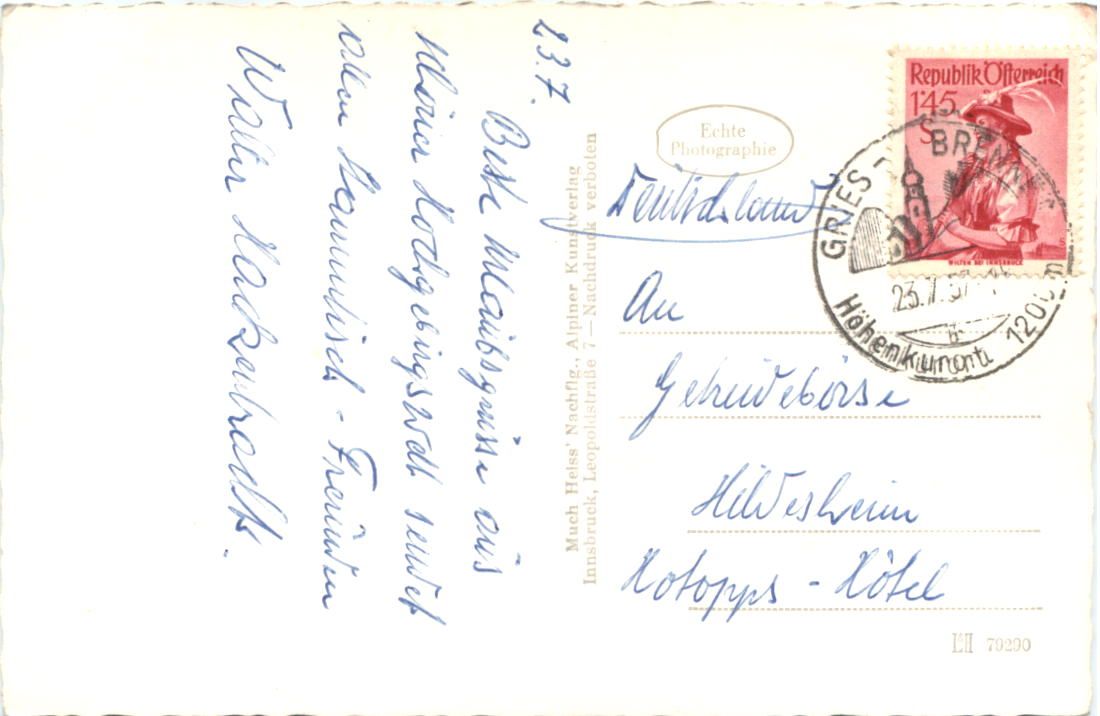 23.7.
Beste Urlaubsgrüsse aus
Hochgebirgswelt sendet
allen Stammtisch - Freunden
Walter
Much Heiss' Nachflg., Alpiner Kunstverlag
Innsbruck, Leopoldstraße 7 — Nachdruck verboten
Echte
Photographie
Republik Österreich
1'45
S
WILTEN BEI INNSBRUCK
GRIES BRENNER
23.7.57
Höhenkurort 1200m
Deutschland
An
Getreidebörse
Hildesheim
Hotopps - Hotel
79290